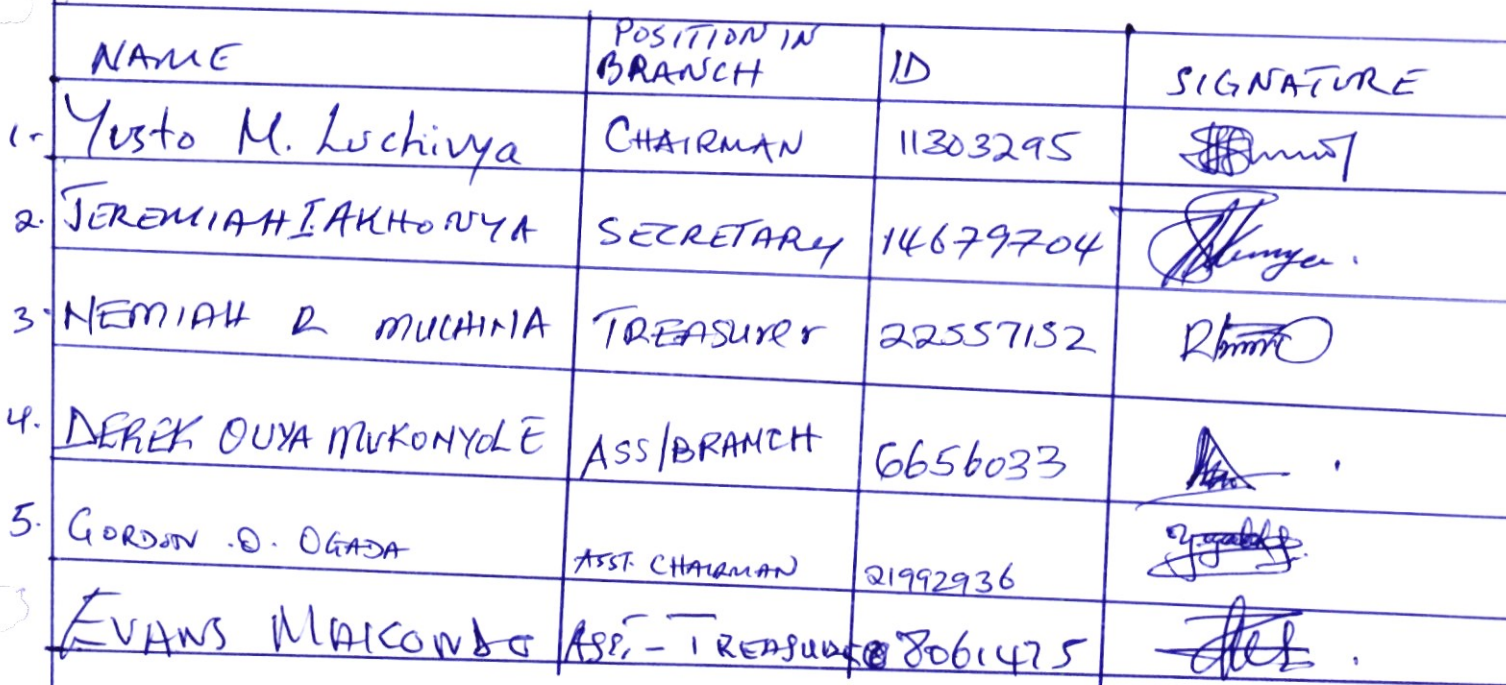 NAME POSITION IN BRANCH ID SIGNATURE
1- Yusto M. Luchivya CHAIRMAN 11303295
2. JEREMIAH I. AKHONYA SECRETARY 14679704
3. NEMIAH R MUCHINA TREASURER 22557152
4. DEREK OUYA MUKONYOLE ASS/BRANCH 6656033
5. GORDON .O. OGADA ASST. CHAIRMAN 21992936
EVANS MAKONDO ASS. - TREASURER 8061475